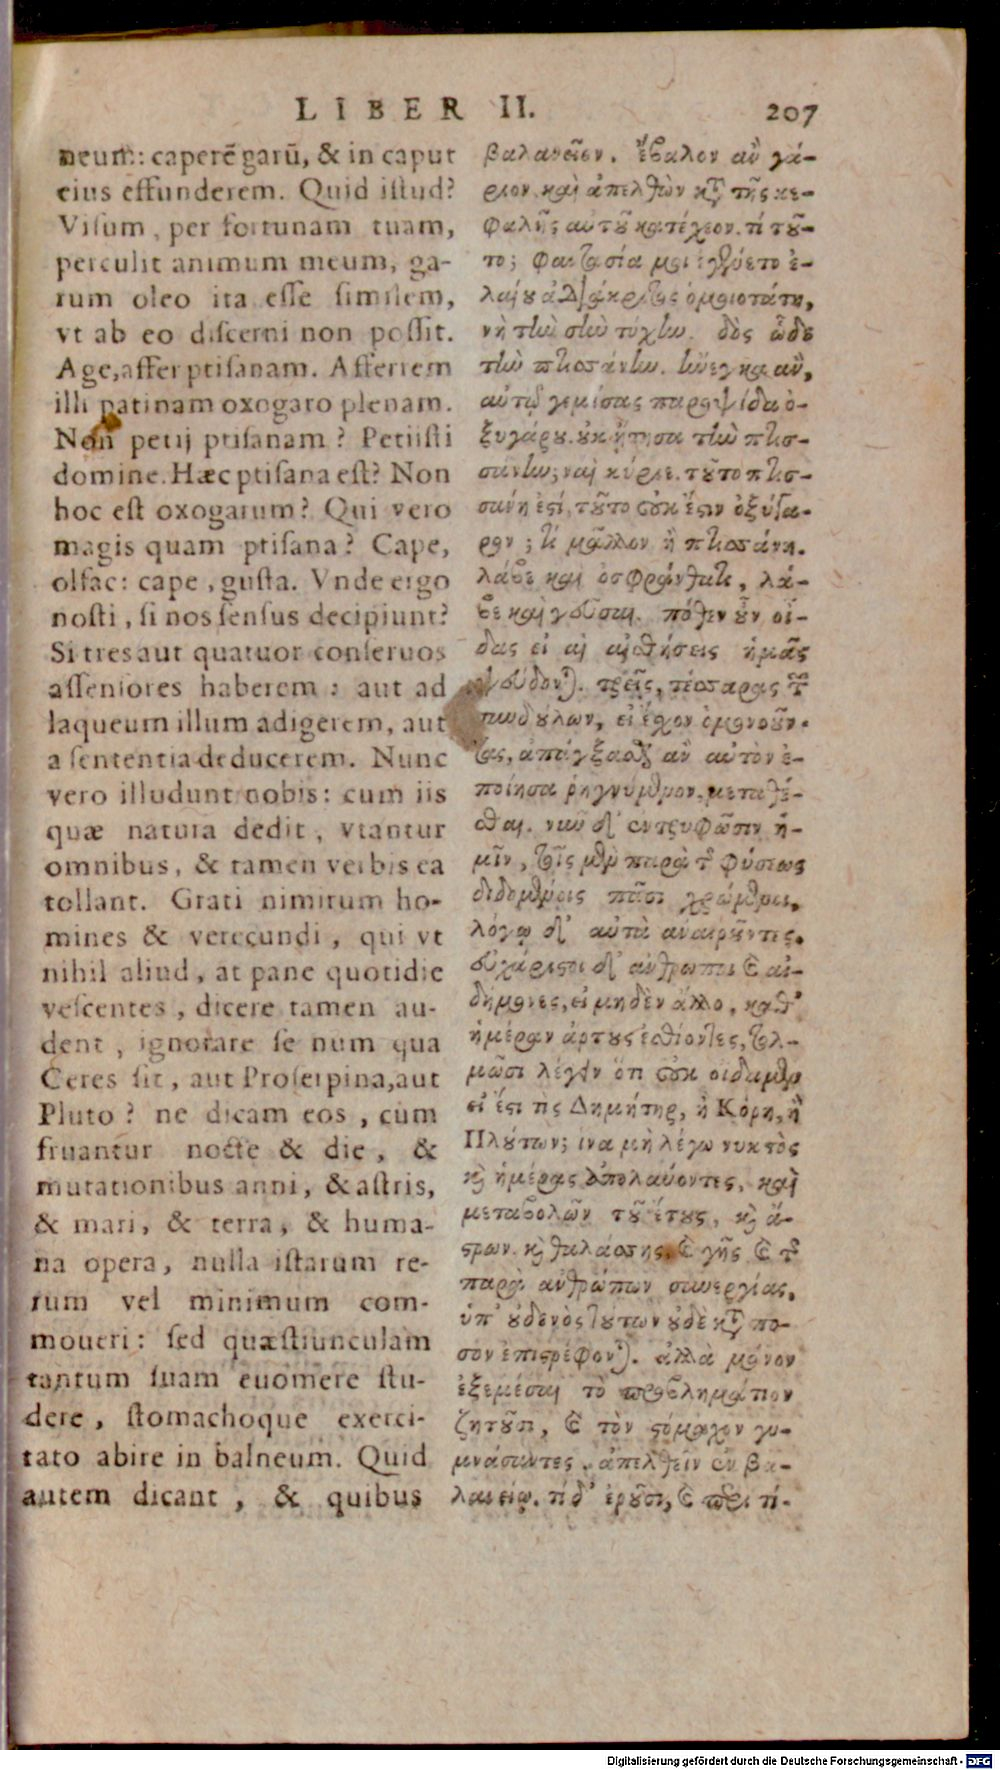 LIBER II. 207
neum: caperē garū, & in caput
eius effunderem. Quid istud?
Visum, per fortunam tuam,
perculit animum meum, ga-
rum oleo ita esse similem,
vt ab eo discerni non possit.
Age, affer ptisanam. Afferrem
illi patinam oxogaro plenam.
Non petij ptisanam? Petiisti
domine. Hæc ptisana est? Non
hoc est oxogarum? Qui vero
magis quam ptisana? Cape,
olfac: cape, gusta. Vnde ergo
nosti, si nos sensus decipiunt?
Si tres aut quatuor conseruos
assensores haberem: aut ad
laqueum illum adigerem, aut
a sententia deducerem. Nunc
vero illudunt nobis: cum iis
quæ natura dedit, vtantur
omnibus, & tamen verbis ea
tollant. Grati nimirum ho-
mines & verecundi, qui vt
nihil aliud, at pane quotidie
vescentes, dicere tamen au-
dent, ignorare se num qua
Ceres sit, aut Proserpina, aut
Pluto? ne dicam eos, cum
fruantur nocte & die, &
mutationibus anni, & astris,
& mari, & terra, & huma-
na opera, nulla istarum re-
rum vel minimum com-
moueri: sed quæstiunculam
tantum suam euomere stu-
dere, stomachoque exerci-
tato abire in balneum. Quid
autem dicant, & quibus
βαλανεῖον. ἔβαλον ἂν γά-
ριον καὶ ἀπελθὼν κατὰ τῆς κε-
φαλῆς αὐτοῦ κατέχεον. τί τοῦ-
το; φαντασία μοι ἐγένετο ἐ-
λαίου ἀδιάκριτος ὁμοιοτάτη,
νὴ τὴν σὴν τύχην. δὸς ὧδε
τὴν πτισάνην. ἤνεγκα ἂν,
αὐτῷ γεμίσας παροψίδα ὀ-
ξυγάρου. οὐκ ᾔτησα τὴν πτισ-
σάνην; ναὶ κύριε. τοῦτο πτισ-
σάνη ἐστί, τοῦτο οὐκ ἔστιν ὀξύγα-
ρον; τί μᾶλλον ἢ πτισάνη.
λάβε καὶ ὀσφράνθητι, λά-
βε καὶ γεῦσαι. πόθεν οὖν οἶ-
δας εἰ αἱ αἰσθήσεις ἡμᾶς
ψεύδονται. τρεῖς, τέσσαρας τῶν
συνδούλων, εἰ ἔχον ὁμονοοῦν-
τας, ἀπάγξασθαι ἂν αὐτὸν ἐ-
ποίησα ῥηγνύμενον, μεταθέ-
σθαι. νῦν δ' ἐντρυφῶσιν ἡ-
μῖν, τοῖς μὲν παρὰ τῆς φύσεως
διδομένοις πᾶσι χρώμενοι,
λόγῳ δ' αὐτὰ ἀναιροῦντες.
εὐχάριστοι δ' ἄνθρωποι καὶ αἰ-
δήμονες, εἰ μηδὲν ἄλλο, καθ'
ἡμέραν ἄρτους ἐσθίοντες, τολ-
μῶσι λέγειν ὅτι οὐκ οἴδαμεν
εἰ ἔστι τις Δημήτηρ, ἢ Κόρη, ἢ
Πλούτων; ἵνα μὴ λέγω νυκτὸς
καὶ ἡμέρας ἀπολαύοντες, καὶ
μεταβολῶν τοῦ ἔτους, καὶ ἄ-
στρων καὶ θαλάσσης, καὶ γῆς καὶ τῆς
παρὰ ἀνθρώπων συνεργίας,
ὑπ' οὐδενὸς τούτων οὐδὲ κατὰ πο-
σὸν ἐπιστρέφονται. ἀλλὰ μόνον
ἐξεμέσαι τὸ προβλημάτιον
ζητοῦσι, καὶ τὸν στόμαχον γυ-
μνάσαντες ἀπελθεῖν ἐν βα-
λανείῳ. τί δ' ἐροῦσι, καὶ περὶ τί-
Digitalisierung gefördert durch die Deutsche Forschungsgemeinschaft - DFG